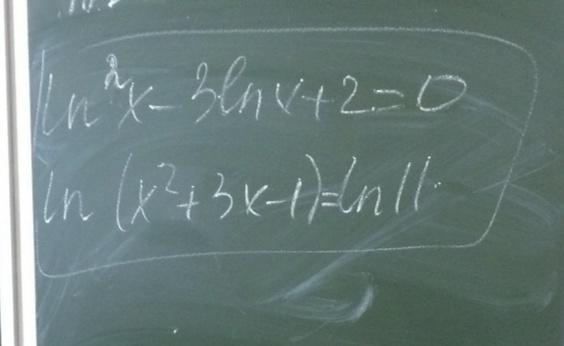 ln²x-3lnx+2=0
ln(x²+3x-1)=ln11.